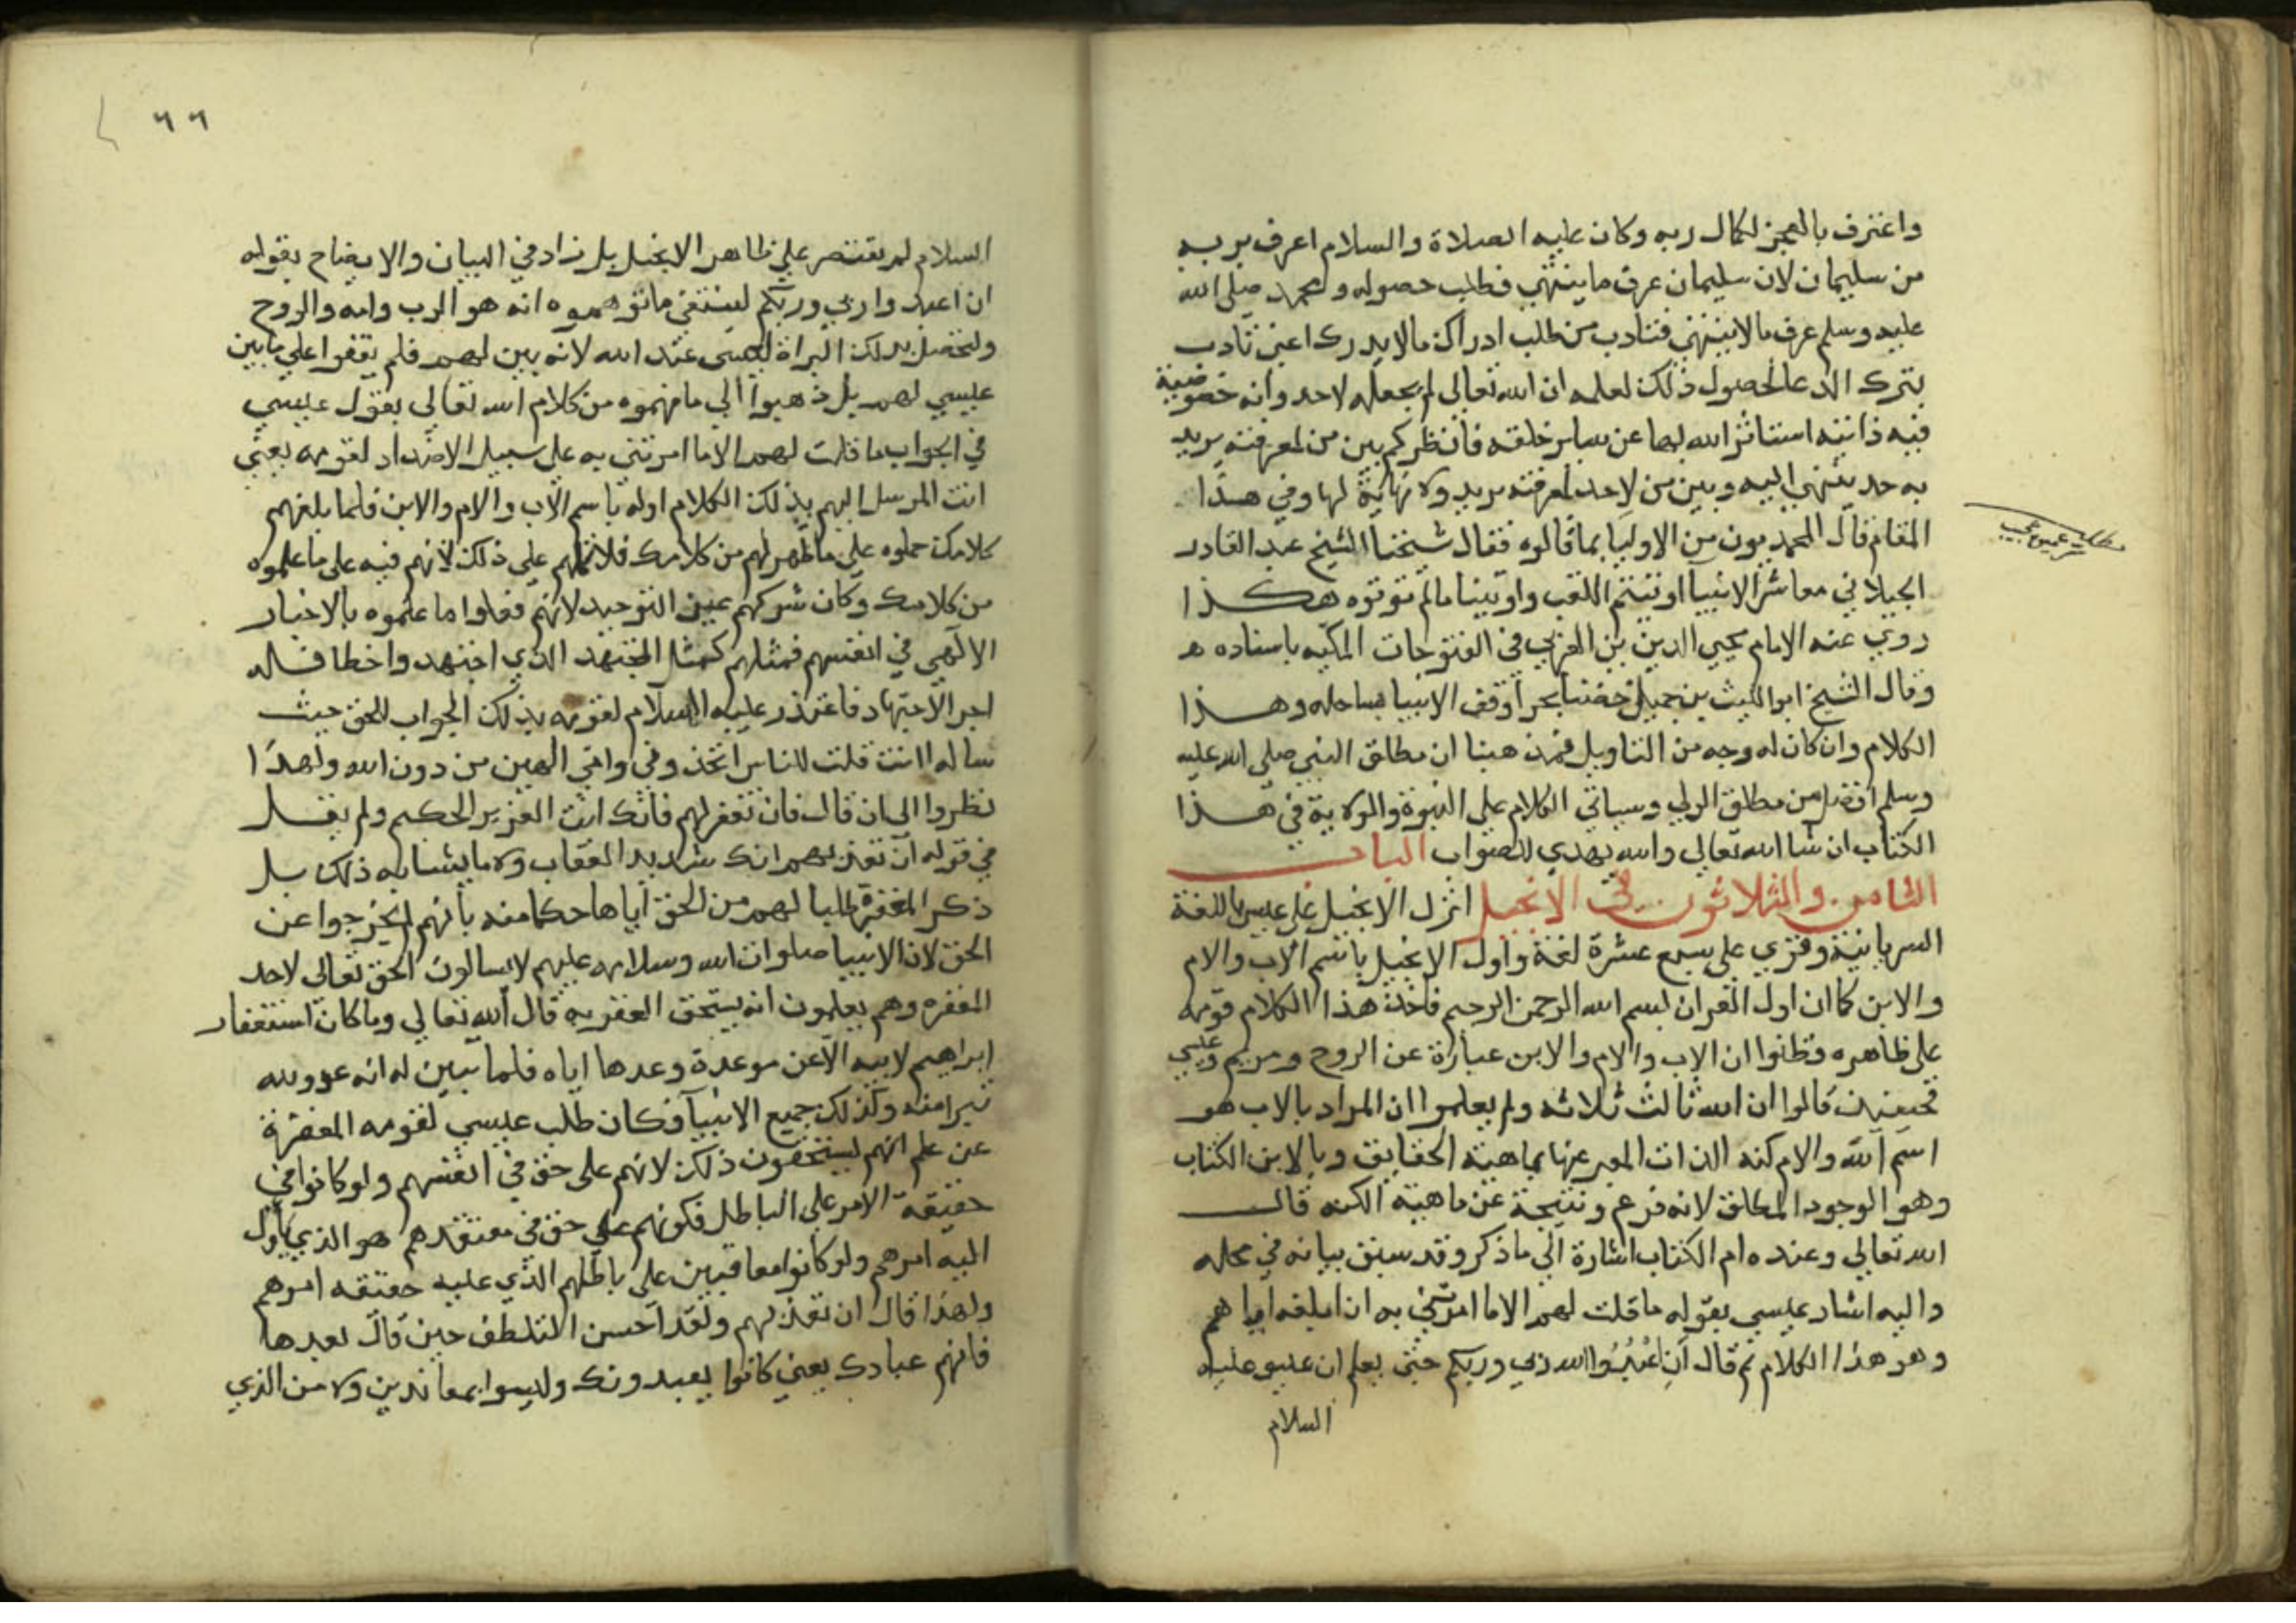 واعترف بالعجز لكمال ربه وكان عليه الصلاة والسلام اعرف بربه
من سليمان لان سليمان عرف ما ينتهي فطلب حصوله ومحمد صلى الله
عليه وسلم عرف مالا ينتهي فتادب من طلب ادراك مالا يدرك اعني تادب
بترك الدعا لحصول ذلك لعلمه ان الله تعالى لم يجعله لاحد وانه خصوصية
فيه ذاتيه استاثر الله بها عن ساير خلقه فانظركم بين من لمعرفته بربه
به حد ينتهي اليه وبين من لا حد لمعرفته بربه ولا نهاية لها وفي هذا
المقام قال المحمديون من الاوليا بما قالوه فقال شيخنا الشيخ عبد القادر
الجيلاني معاشر الانبيا اوتيتم اللقب واوتينا مالم توتوه هكذا
روي عنه الامام محيي الدين بن العربي في الفتوحات المكيه باسناده ه
وقال الشيخ ابو الغيث بن جميل خضنا بحرا وقف الانبيا بساحله وهذا
الكلام وان كان له وجه من التاويل فمذهبنا ان مطلق النبي صلى الله عليه
وسلم افضل من مطلق الولي وسياتي الكلام على النبوة والولاية في هذا
الكتاب ان شا الله تعالى والله يهدي للصواب الباب
الثامن والثلاثون في الانجيل انزل الانجيل على عيسى باللغة
السريانية وقري على سبع عشرة لغة واول الانجيل باسم الاب والام
والابن كما ان اول القران بسم الله الرحمن الرحيم فاخذ هذا الكلام قومه
على ظاهره وظنوا ان الاب والام والابن عبارة عن الروح ومريم وعيسى
فحينئذ قالوا ان الله ثالث ثلاثه ولم يعلموا ان المراد بالاب هو
اسم الله والام كنه الذات المعبر عنها بماهية الحقايق وبالابن الكتاب
وهو الوجود المطلق لانه فرع ونتيجة عن ماهية الكنه قال
الله تعالى وعنده ام الكتاب اشارة الى ما ذكر وقد سبق بيانه في محله
واليه اشار عيسى بقوله ما قلت لهم الا ما امرتني به ان ابلغه اياهم
وهو هذا الكلام ثم قال ان اعبدوا الله ربي وربكم حتى يعلم ان عيسى عليه
السلام
٦٦
السلام لم يقتصر على ظاهر الانجيل بل زاد في البيان والايضاح بقوله
ان اعبدوا ربي وربكم لينتفي ما توهموه انه هو الرب وامه والروح
وليحصل بذلك البراة لعيسى عند الله لانه بين لهم فلم يقفوا على ما بين
عيسى لهم بل ذهبوا الى ما فهموه من كلام الله تعالى بقول عيسى
في الجواب ما قلت لهم الا ما امرتني به على سبيل الاعتذار لقومه يعني
انت المرسل اليهم بذلك الكلام اوله باسم الاب والام والابن فلما بلغهم
كلامك حملوه على ما ظهر لهم من كلامك فلا تلمهم على ذلك لانهم فيه على ما علموه
من كلامك وكان شركهم عين التوحيد لانهم فعلوا ما علموه بالاخبار
الالهي في انفسهم فمثلهم كمثل المجتهد الذي اجتهد واخطا فله
اجر الاجتهاد فاعتذر عليه السلام لقومه بذلك الجواب للحق حيث
ساله اانت قلت للناس اتخذوني وامي الهين من دون الله ولهذا
نظروا الى ان قال فان تغفر لهم فانك انت العزيز الحكيم ولم يقل
في قوله ان تعذبهم انك شديد العقاب ولا ما يشابه ذلك بل
ذكر المغفرة طلبا لهم من الحق اياها حكما منه بانهم لم يخرجوا عن
الحق لان الانبيا صلوات الله وسلامه عليهم لا يسالون الحق تعالى لاحد
المغفره وهم يعلمون انه يستحق العقوبه قال الله تعالى وما كان استغفار
ابراهيم لابيه الا عن موعدة وعدها اياه فلما تبين له انه عدو لله
تبرا منه وكذلك جميع الانبيا فكان طلب عيسى لقومه المغفرة
عن علم انهم يستحقون ذلك لانهم على حق في انفسهم ولو كانوا في
حقيقة الامر على الباطل فكونهم على حق في معتقدهم هو الذي ياول
اليه امرهم ولو كانوا معاقبين على باطلهم الذي عليه حقيقه امرهم
ولهذا قال ان تعذبهم ولقد احسن التلطف حين قال بعدها
فانهم عبادك يعني كانوا يعبدونك وليسوا بمعاندين ولا من الذي